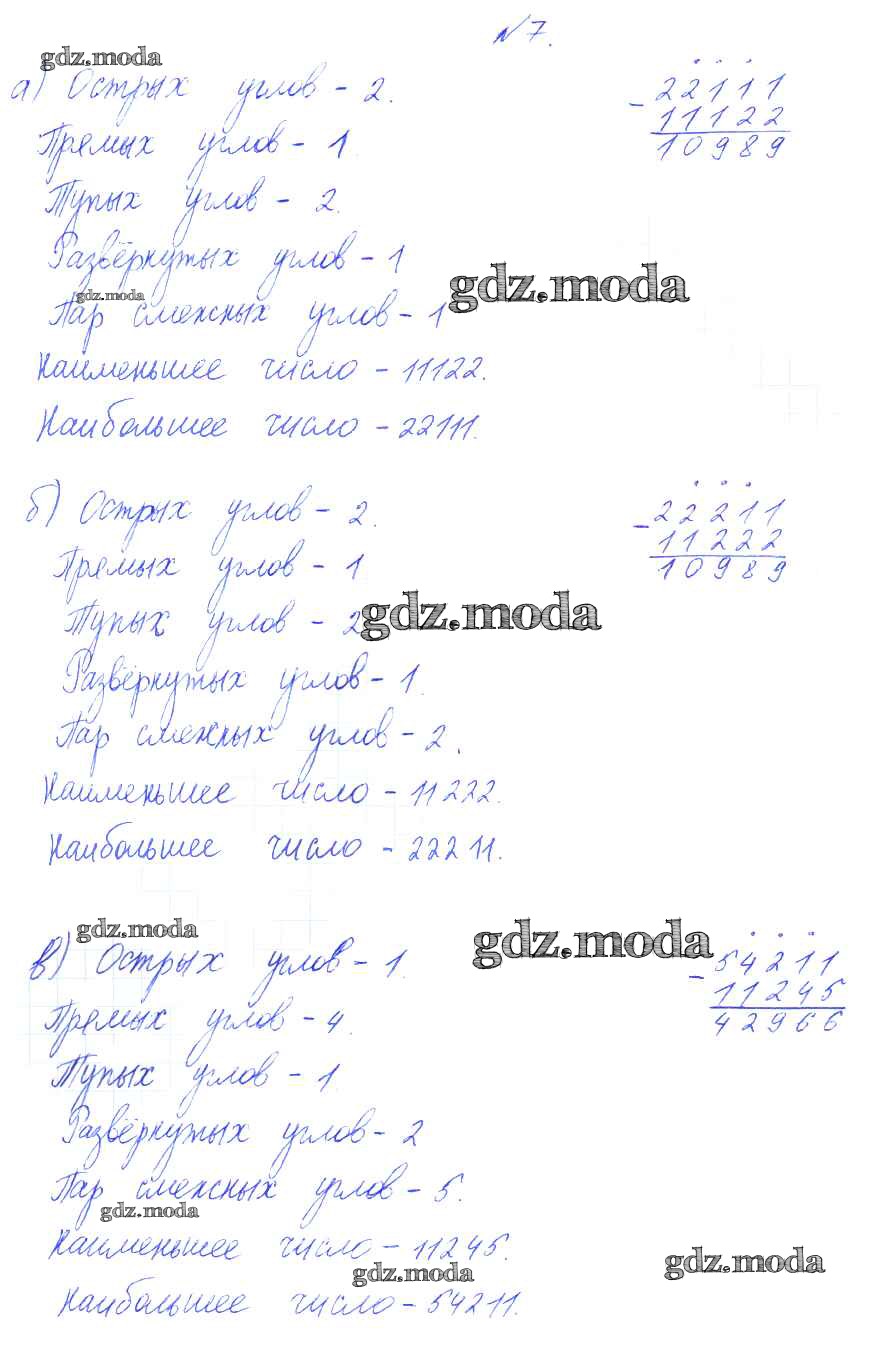 №7.
gdz.moda
а) Острых углов - 2.
Прямых углов - 1
Тупых углов - 2.
Развёрнутых углов - 1
gdz.moda
gdz.moda
Пар смежных углов - 1
Наименьшее число - 11122.
Наибольшее число - 22111.
- 22111
11122
10989
б) Острых углов - 2.
Прямых углов - 1
Тупых углов - 2
gdz.moda
Развёрнутых углов - 1.
Пар смежных углов - 2.
Наименьшее число - 11222.
Наибольшее число - 22211.
- 22211
11222
10989
gdz.moda
gdz.moda
в) Острых углов - 1.
Прямых углов - 4.
Тупых углов - 1.
Развёрнутых углов - 2
Пар смежных углов - 5.
gdz.moda
Наименьшее число - 11245.
gdz.moda
gdz.moda
Наибольшее число - 54211.
- 54211
11245
42966